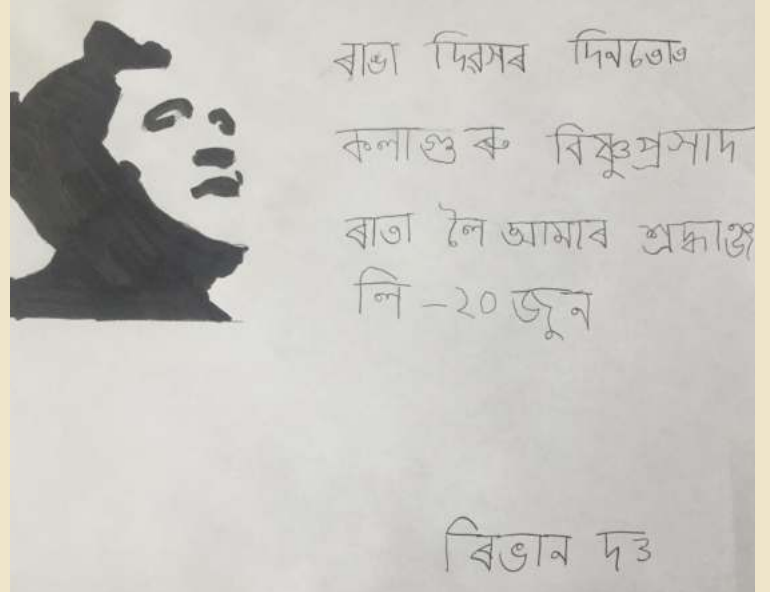 ৰাভা দিৱসৰ দিনতোত
কলাগুৰু বিষ্ণুপ্ৰসাদ
ৰাভা লৈ আমাৰ শ্ৰদ্ধাঞ্জ
লি -২০ জুন
ৰিভান দত্ত